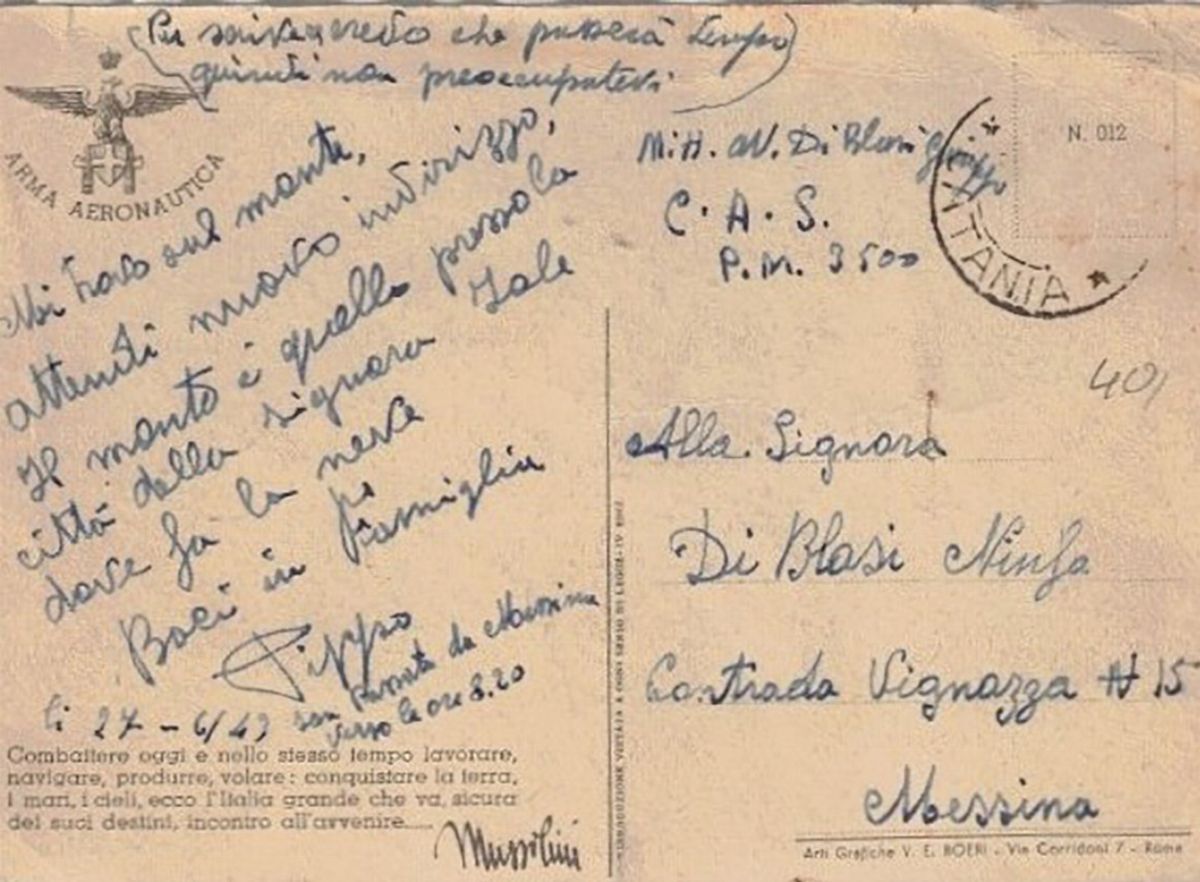 (Per scrivere credo che passerà tempo)
quindi non preoccupatevi
ARMA AERONAUTICA
Mi trovo sul monte,
attendi nuovo indirizzo,
Il monte è quello presso la
città della signora Iole
dove fa la neve
Baci in Famiglia
Pippo
li 27 - 6/43 son passato da Messina
verso le ore 8.20
Combattere oggi e nello stesso tempo lavorare,
navigare, produrre, volare: conquistare la terra,
i mari, i cieli, ecco l'Italia grande che va, sicura
dei suoi destini, incontro all'avvenire.....
Mussolini
N. 012
CATANIA
Di Blasi
C. A. S.
P.M. 3500
401
Alla Signora
Di Blasi Ninfa
Contrada Vignazza N 15
Messina
RIPRODUZIONE VIETATA A OGNI SENSO DI LEGGE
Arti Grafiche V. E. BOERI - Via Corridoni 7 - Roma